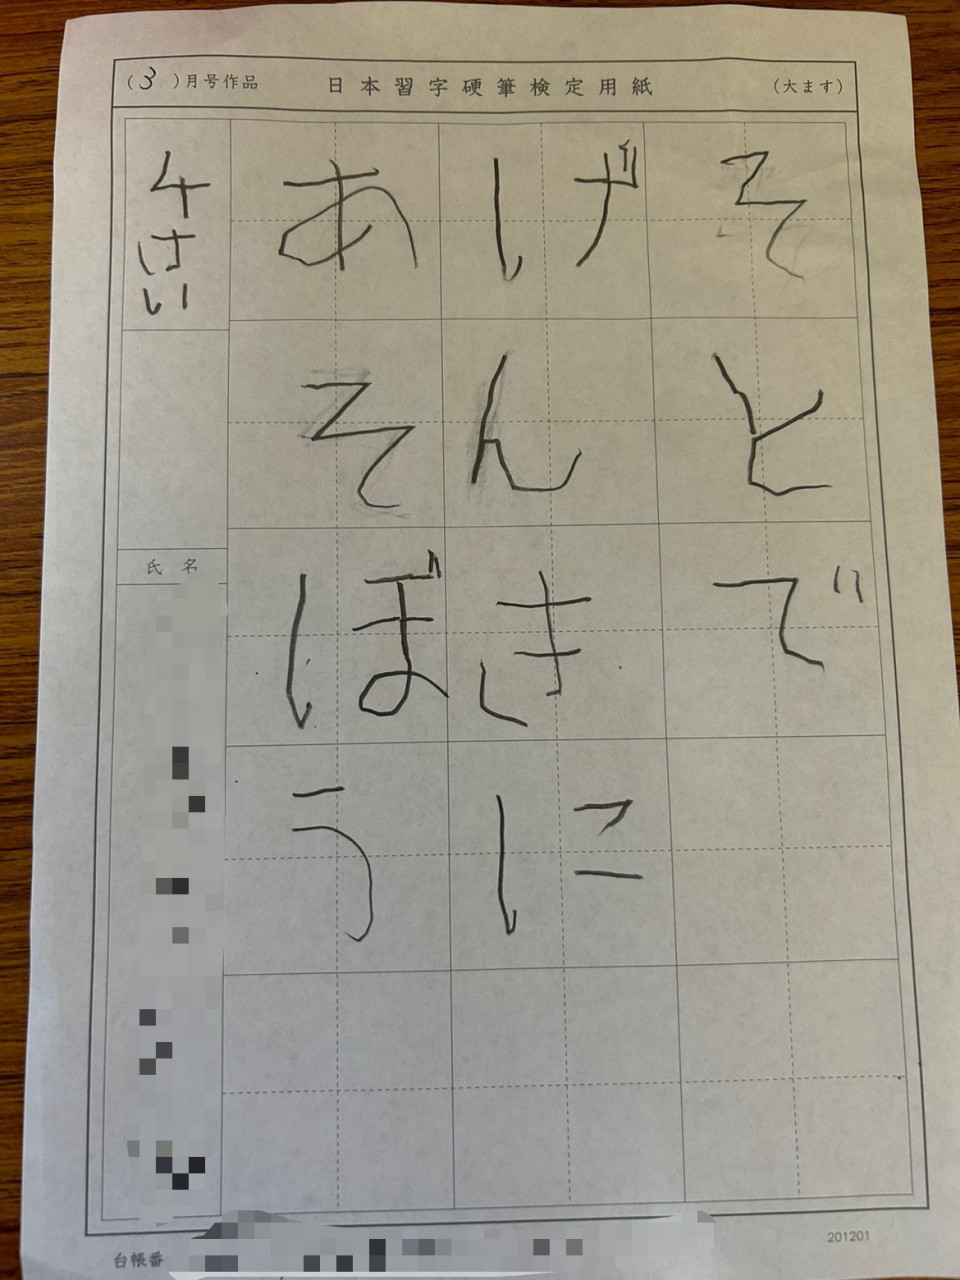 (3)月号作品 日本習字硬筆検定用紙 (大ます)
そとで
げんきに
あそぼう
4さい
氏名
台帳番
201201